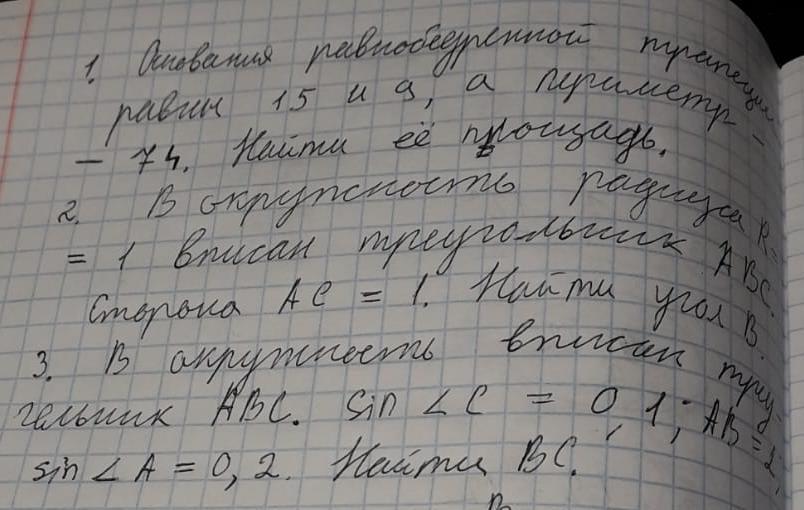 1. Основания равнобедренной трапеции
равны 15 и 9, а периметр –
– 74. Найти её площадь.
2. В окружность радиуса R =
= 1 вписан треугольник ABC.
Сторона AC = 1. Найти угол B.
3. В окружность вписан треу-
гельник ABC. sin ∠C = 0,1; AB = 2,
sin ∠A = 0,2. Найти BC.